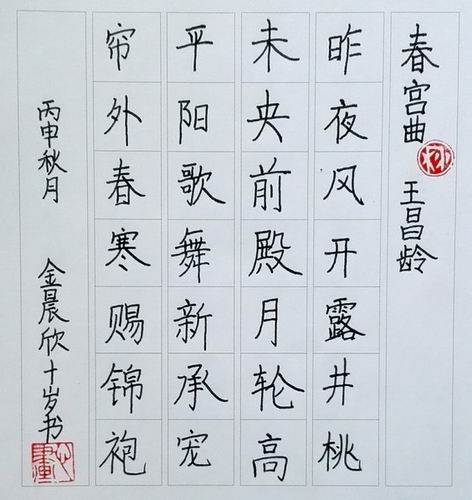 春宫曲 王昌龄
昨夜风开露井桃
未央前殿月轮高
平阳歌舞新承宠
帘外春寒赐锦袍
丙申秋月 金晨欣十岁书